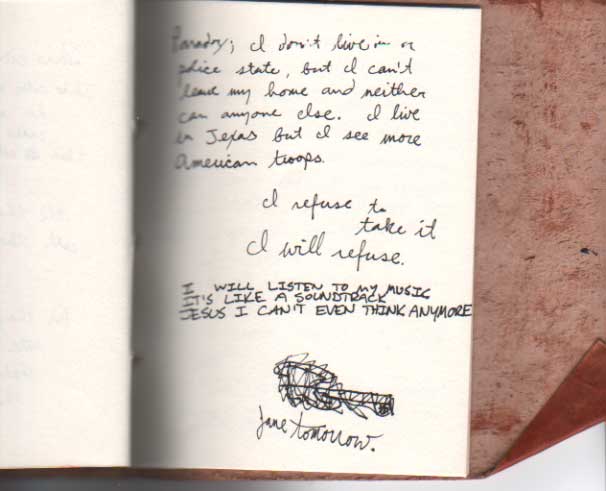 Paradox; I don't live in a
police state, but I can't
leave my home and neither
can anyone else. I live
in Texas but I see more
American troops.
I refuse to
take it
I will refuse.
I WILL LISTEN TO MY MUSIC
IT'S LIKE A SOUNDTRACK
JESUS I CAN'T EVEN THINK ANYMORE
Jane tomorrow.